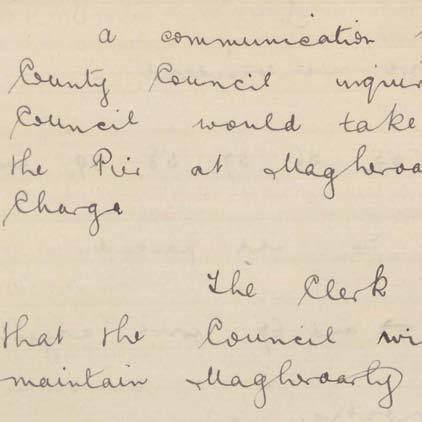 a communication
County Council inquir
Council would take
the Pier at Magheroa
Charge
The Clerk
that the Council wi
maintain Magheroarty